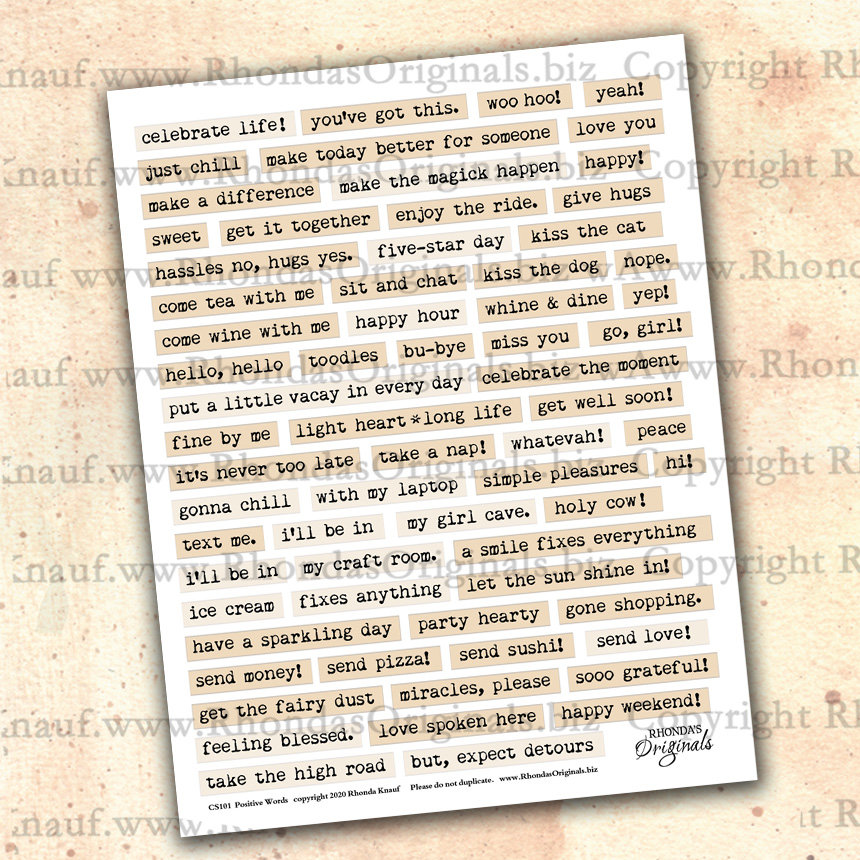 Knauf. www.RhondasOriginals.biz Copyright Rh
celebrate life! you've got this. woo hoo! yeah!
just chill make today better for someone love you
make a difference make the magick happen happy!
sweet get it together enjoy the ride. give hugs
hassles no, hugs yes. five-star day kiss the cat
come tea with me sit and chat kiss the dog nope.
come wine with me happy hour whine & dine yep!
hello, hello toodles bu-bye miss you go, girl!
put a little vacay in every day celebrate the moment
fine by me light heart*long life get well soon!
it's never too late take a nap! whatevah! peace
gonna chill with my laptop simple pleasures hi!
text me. i'll be in my girl cave. holy cow!
i'll be in my craft room. a smile fixes everything
ice cream fixes anything let the sun shine in!
have a sparkling day party hearty gone shopping.
send money! send pizza! send sushi! send love!
get the fairy dust miracles, please sooo grateful!
feeling blessed. love spoken here happy weekend!
take the high road but, expect detours
RHONDA'S
Originals
CS101 Positive Words copyright 2020 Rhonda Knauf Please do not duplicate. www.RhondasOriginals.biz